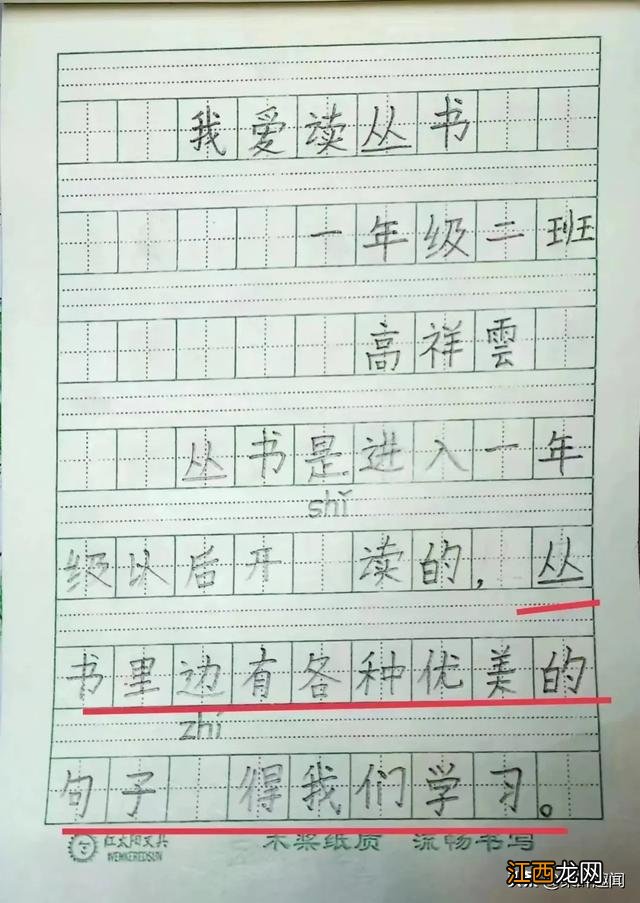 我爱读丛书
一年级二班
高祥雲
丛书是进入一年
shǐ
级以后开 读的，丛
书里边有各种优美的
zhí
句子 得我们学习。
红太阳文具
木浆纸质 流畅书写
江西龙网